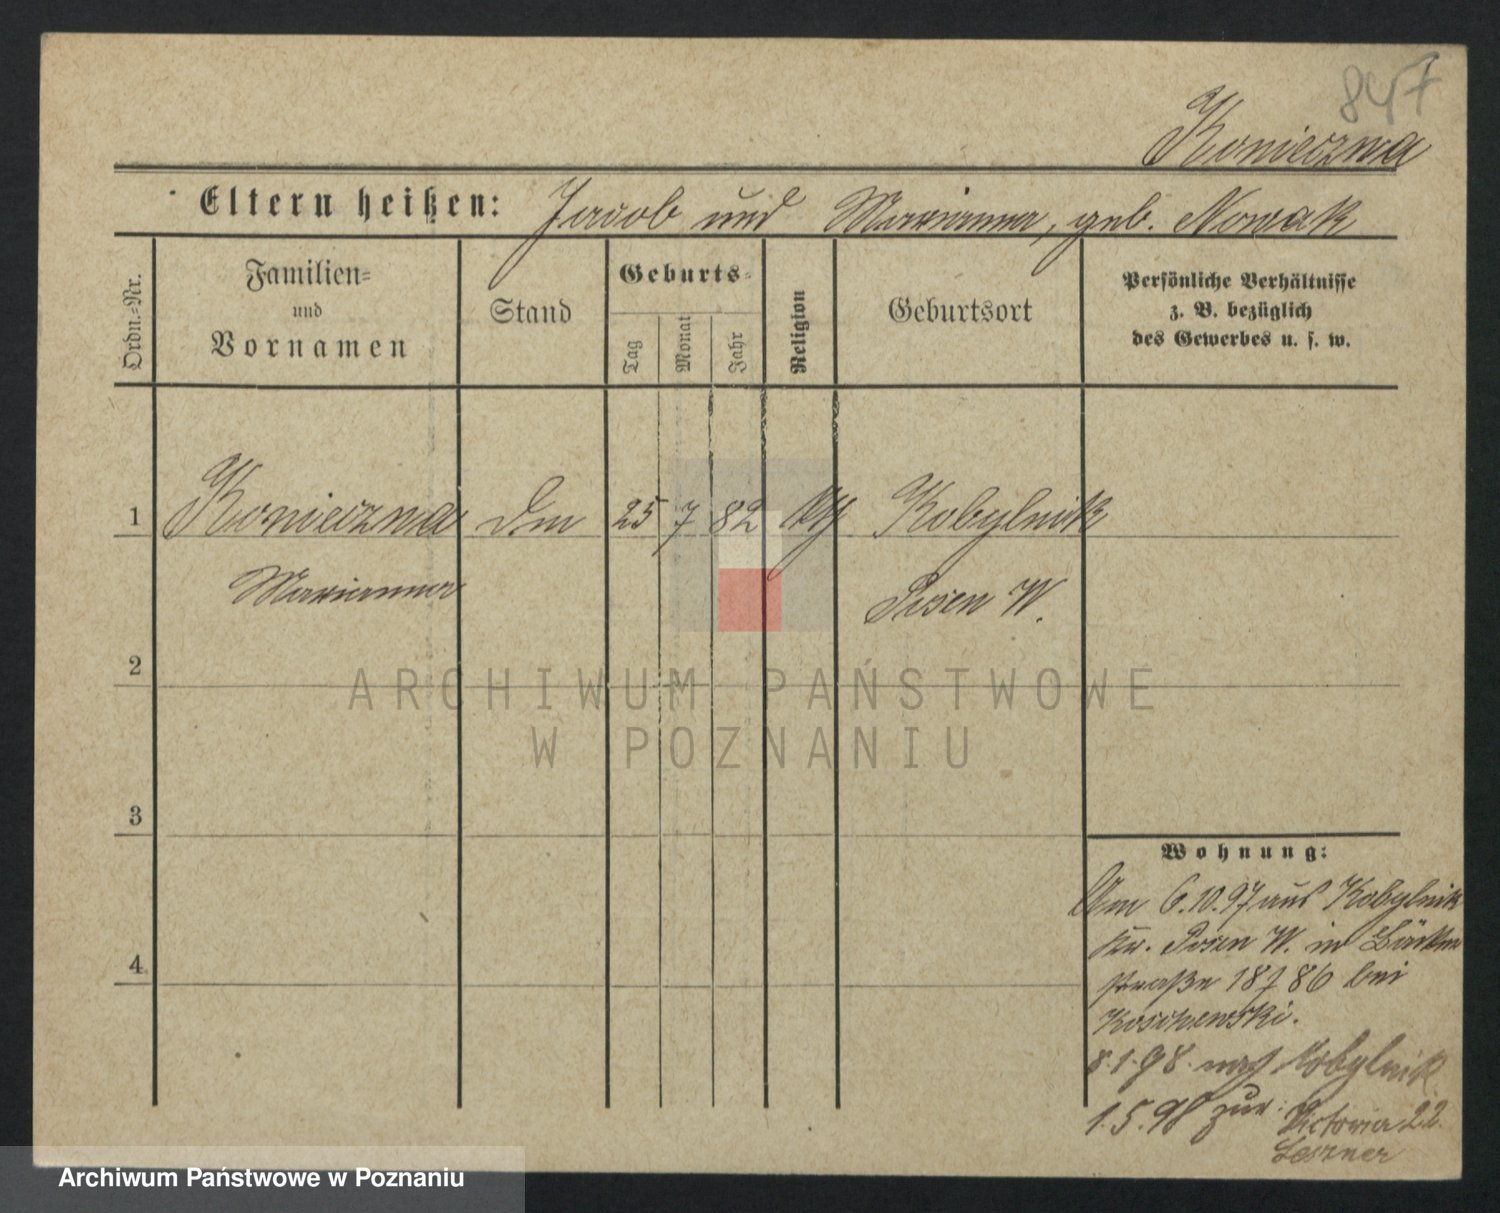 847
Konieczna
Eltern heißen: Jacob und Marianna, geb. Nowak
Ordn.=Nr.
Familien=
und
Vornamen
Stand
Geburts=
Tag
Monat
Jahr
Religion
Geburtsort
Persönliche Verhältnisse
z. B. bezüglich
des Gewerbes u. s. w.
1 Konieczna Dm 25 7 82 kth Kobylnik
Marianna Posen W.
2
ARCHIWUM PAŃSTWOWE
W POZNANIU
3
Wohnung:
Am 6.10.97 aus Kobylnik
Kr. Posen W. in Bäcker
straße bei
4
8.1.98. nach Kobylnik
1.5.98 zur: Victoria 22
Leszner
Archiwum Państwowe w Poznaniu